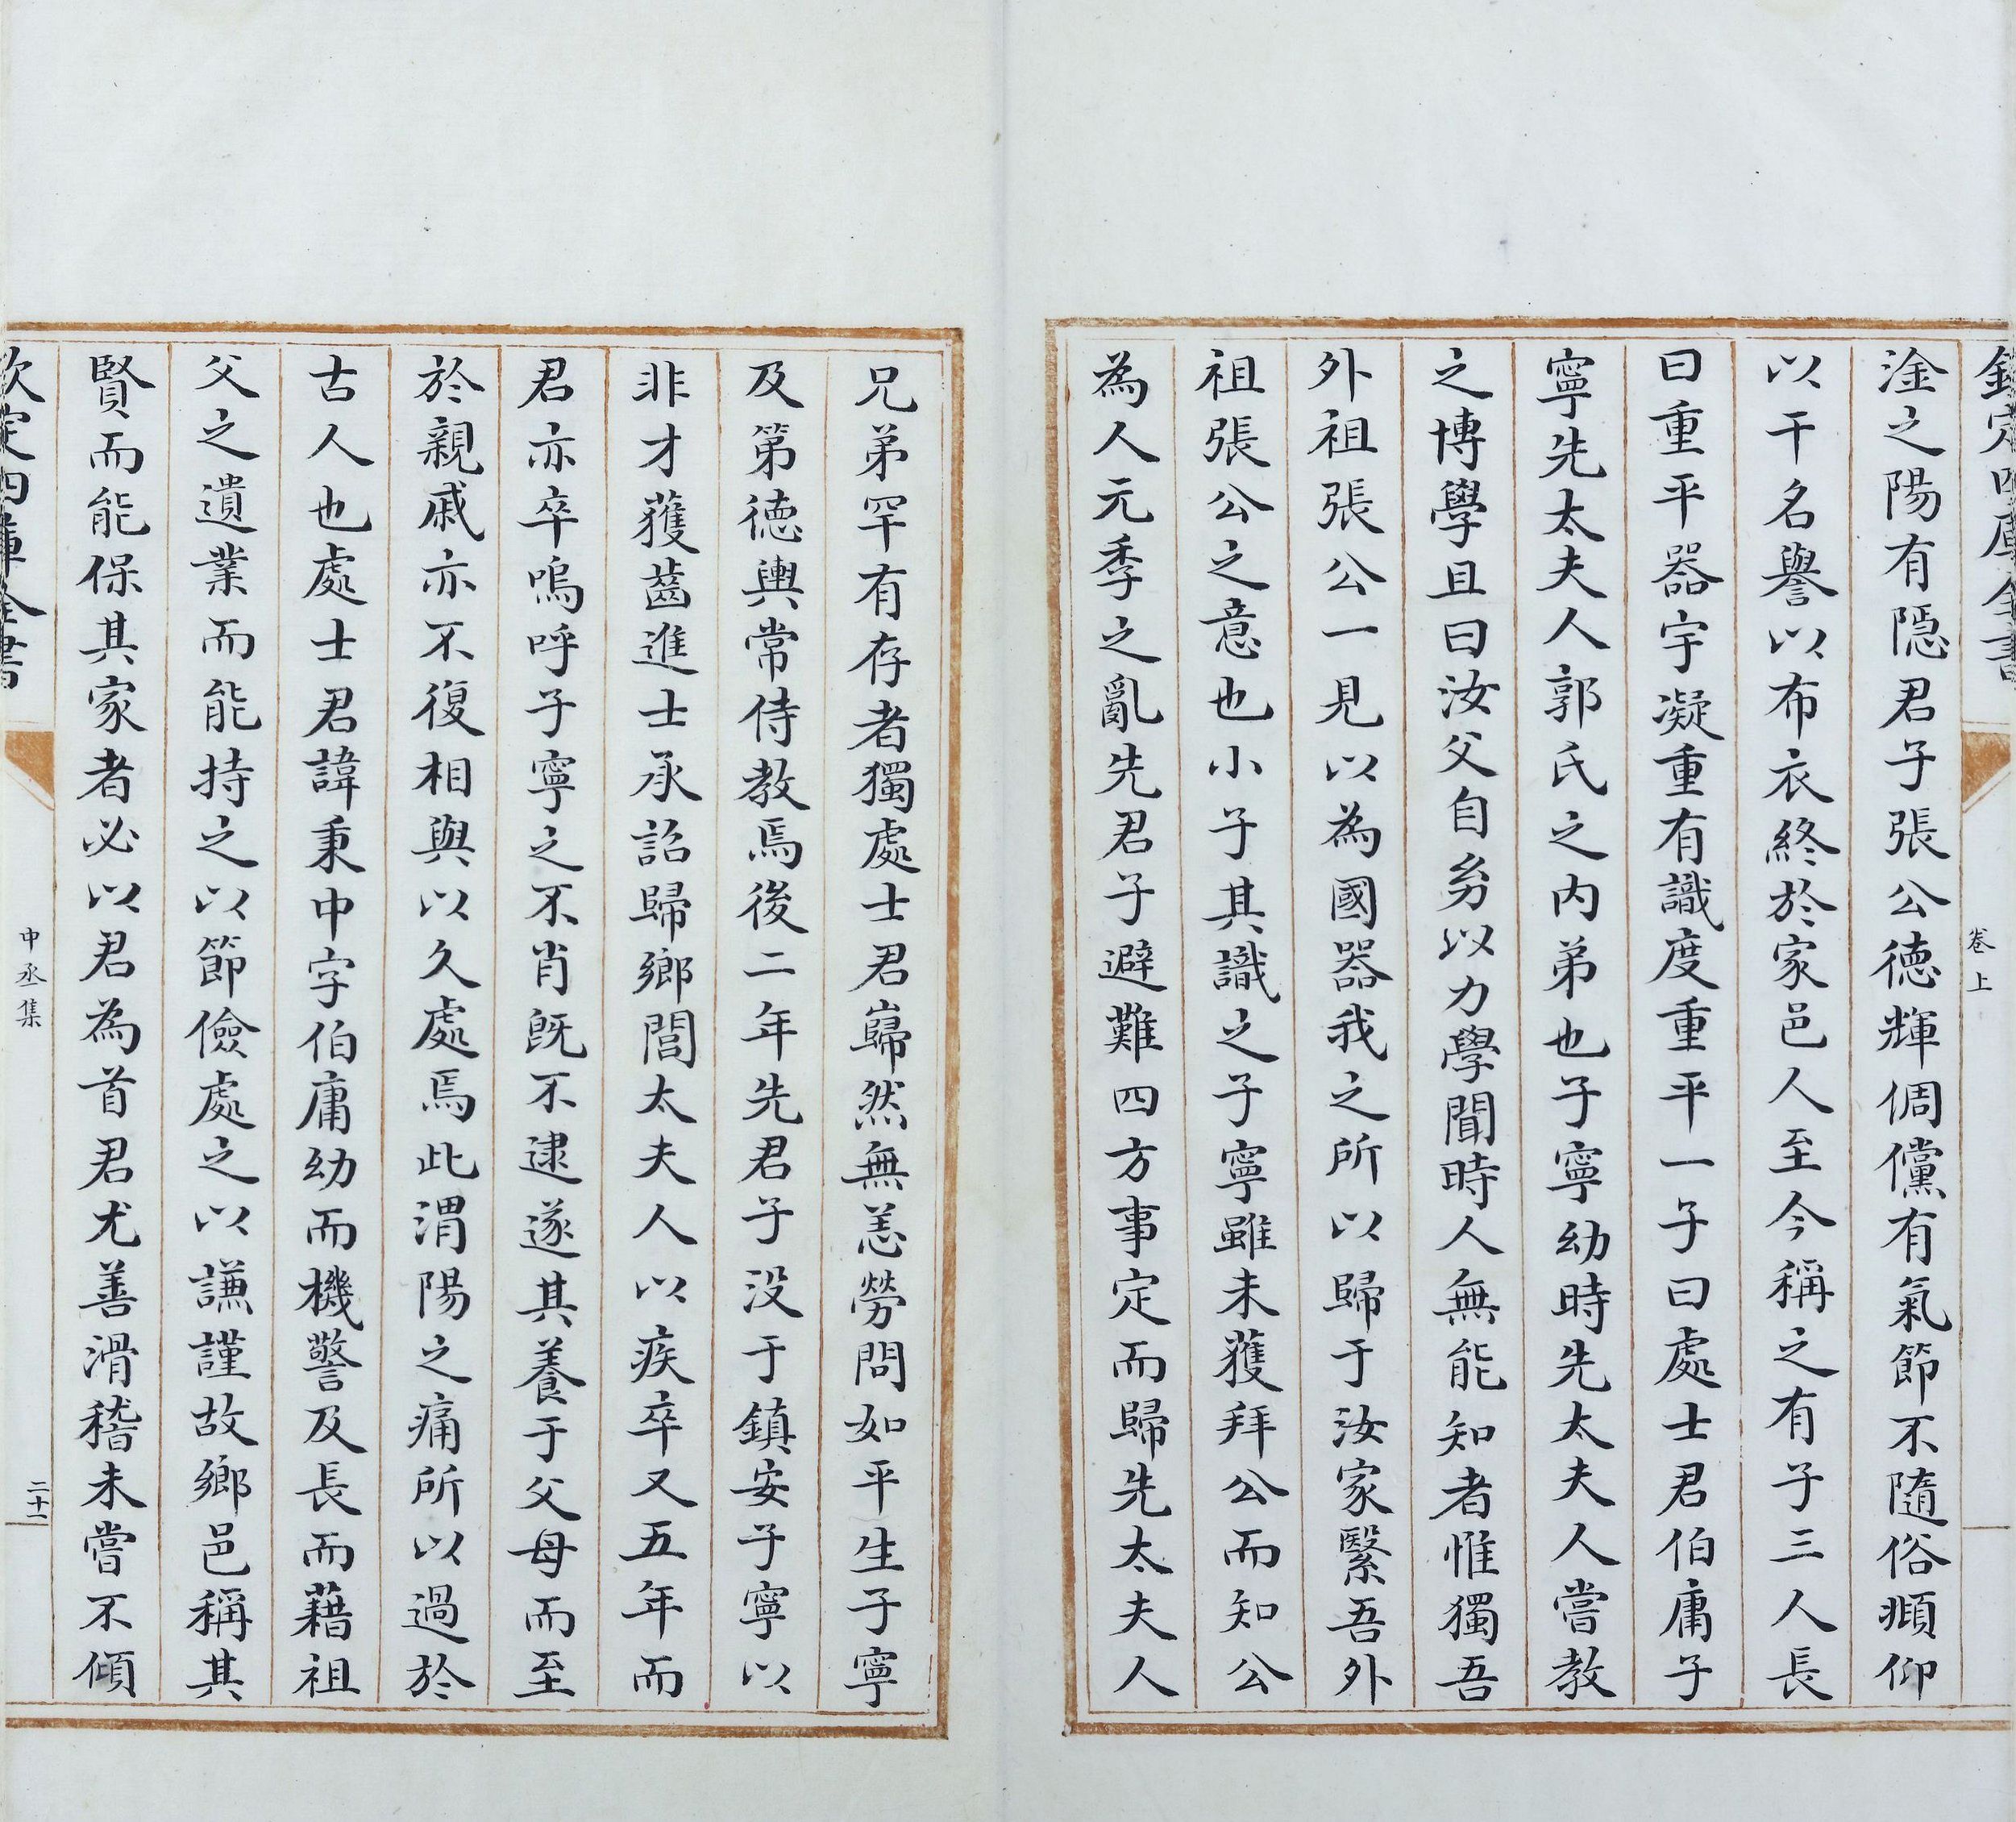 欽定四庫全書
卷上
淦之陽有隱君子張公德輝倜儻有氣節不隨俗頫仰
以干名譽以布衣終於家邑人至今稱之有子三人長
曰重平器宇凝重有識度重平一子曰處士君伯庸子
寧先太夫人郭氏之內弟也子寧幼時先太夫人嘗教
之博學且曰汝父自㓜以力學聞時人無能知者惟獨吾
外祖張公一見以為國器我之所以歸于汝家緊吾外
祖張公之意也小子其識之子寧雖未獲拜公而知公
為人元季之亂先君子避難四方事定而歸先太夫人
兄弟罕有存者獨處士君巋然無恙勞問如平生子寧
及第德輿常侍教焉後二年先君子沒于鎮安子寧以
非才獲齒進士承詔歸鄉閭太夫人以疾卒又五年而
君亦卒嗚呼子寧之不肖既不逮遂其養于父母而至
於親戚亦不復相與以久處焉此渭陽之痛所以過於
古人也處士君諱秉中字伯庸幼而機警及長而藉祖
父之遺業而能持之以節儉處之以謙謹故鄉邑稱其
賢而能保其家者必以君為首君尤善滑稽未嘗不傾
欽定四庫全書
中丞集
二十一